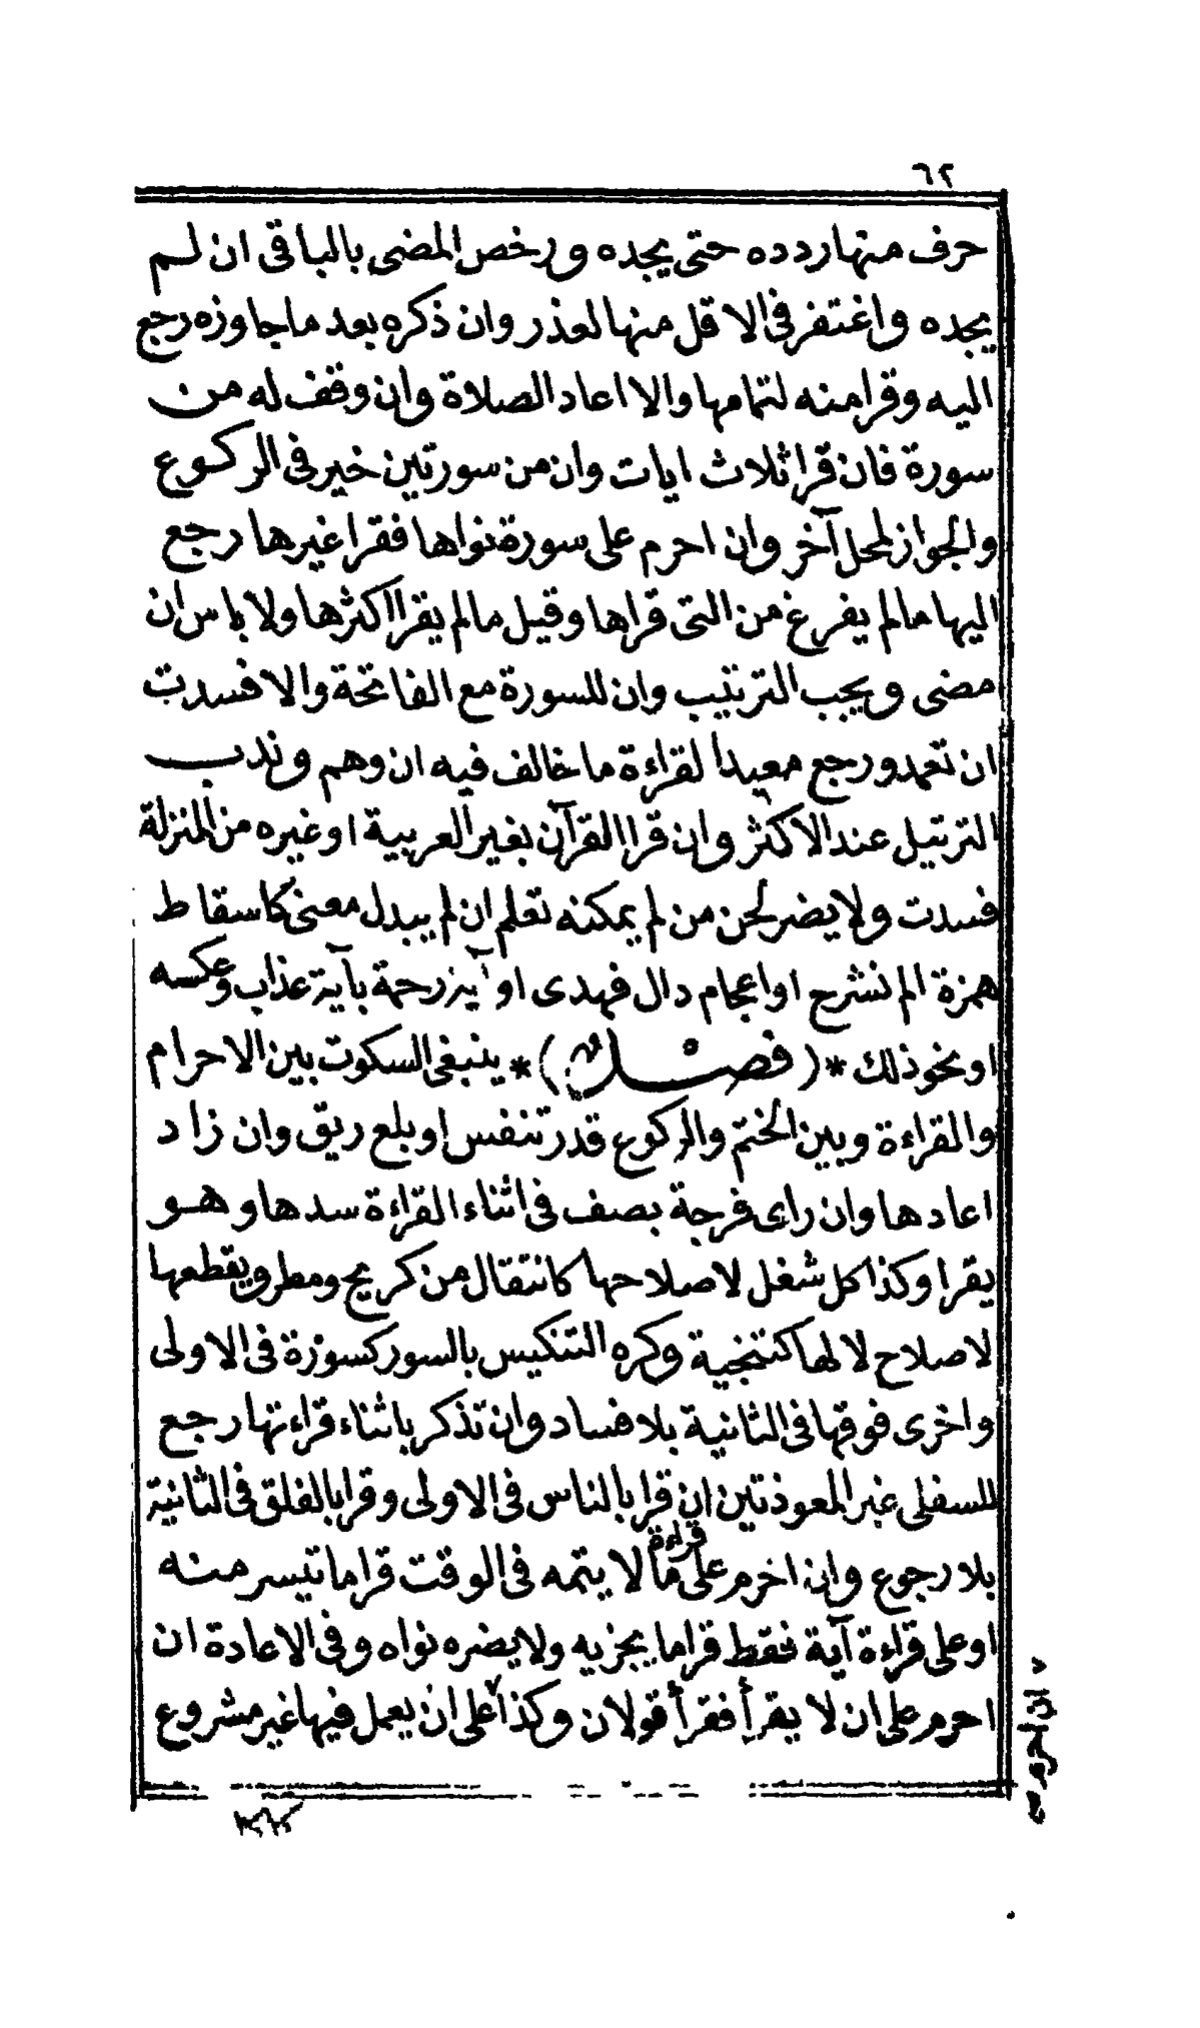 ٦٢
حرف منها ردده حتى يجده ورخص المضي بالباقى ان لم
يجده واغتفر فى الاقل منها لعذر وان ذكره بعد ما جاوزه رجع
اليه وقرا منه لتمامها والا اعاد الصلاة وان وقف له من
سورة فان قرا ثلاث ايات وان من سورتين خير فى الركوع
والجواز لمحل آخر وان احرم على سورة نواها فقرا غيرها رجع
اليها مالم يفرغ من التى قراها وقيل مالم يقرا اكثرها ولا باس ان
مضى ويجب الترتيب وان للسورة مع الفاتحة والا فسدت
ان تعمد ورجع معيدا لقراءة ما خالف فيه ان وهم وندب
الترتيل عند الاكثر وان قرا القرآن بغير العربية او غيره من المنزلة
فسدت ولا يضر لحن من لم يمكنه تعلم ان لم يبدل معنى كاسقاط
همزة الم نشرح او اعجام دال فهدى او آية رحمة بآية عذاب وعكسه
او نحو ذلك *( فصل )* ينبغى السكوت بين الاحرام
والقراءة وبين الختم والركوع قدر تنفس او بلع ريق وان زاد
اعادها وان راى فرجة بصف فى اثناء القراءة سدها وهو
يقرا وكذا كل شغل لاصلاحها كانتقال من كريح ومطر ويقطعها
لاصلاح لا لها كتنجية وكره التنكيس بالسور كسورة فى الاولى
واخرى فوقها فى الثانية بلا فساد وان تذكر باثناء قراءتها رجع
للسفلى غير المعوذتين ان قرا بالناس فى الاولى وقرا بالفلق فى الثانية
بلا رجوع وان احرم على قراءة ما لا يتمه فى الوقت قرا ما تيسر منه
او على قراءة آية فقط قرا ما يجزيه ولا يضره نواه وفى الاعادة ان
احرم على ان لا يقرأ فقرأ قولان وكذا على ان يعمل فيها غير مشروع
ان احرم صح